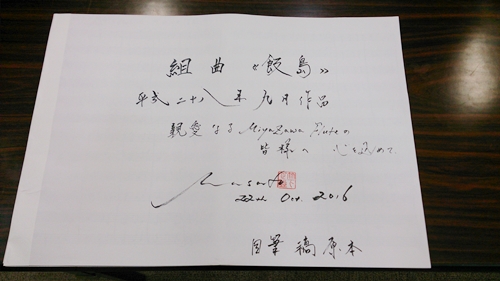 組曲 《飯島》
平成二十八年九月作品
親愛なる Miyazawa Fluteの
皆様へ 心を込めて
22th Oct. 2016
自筆稿原本